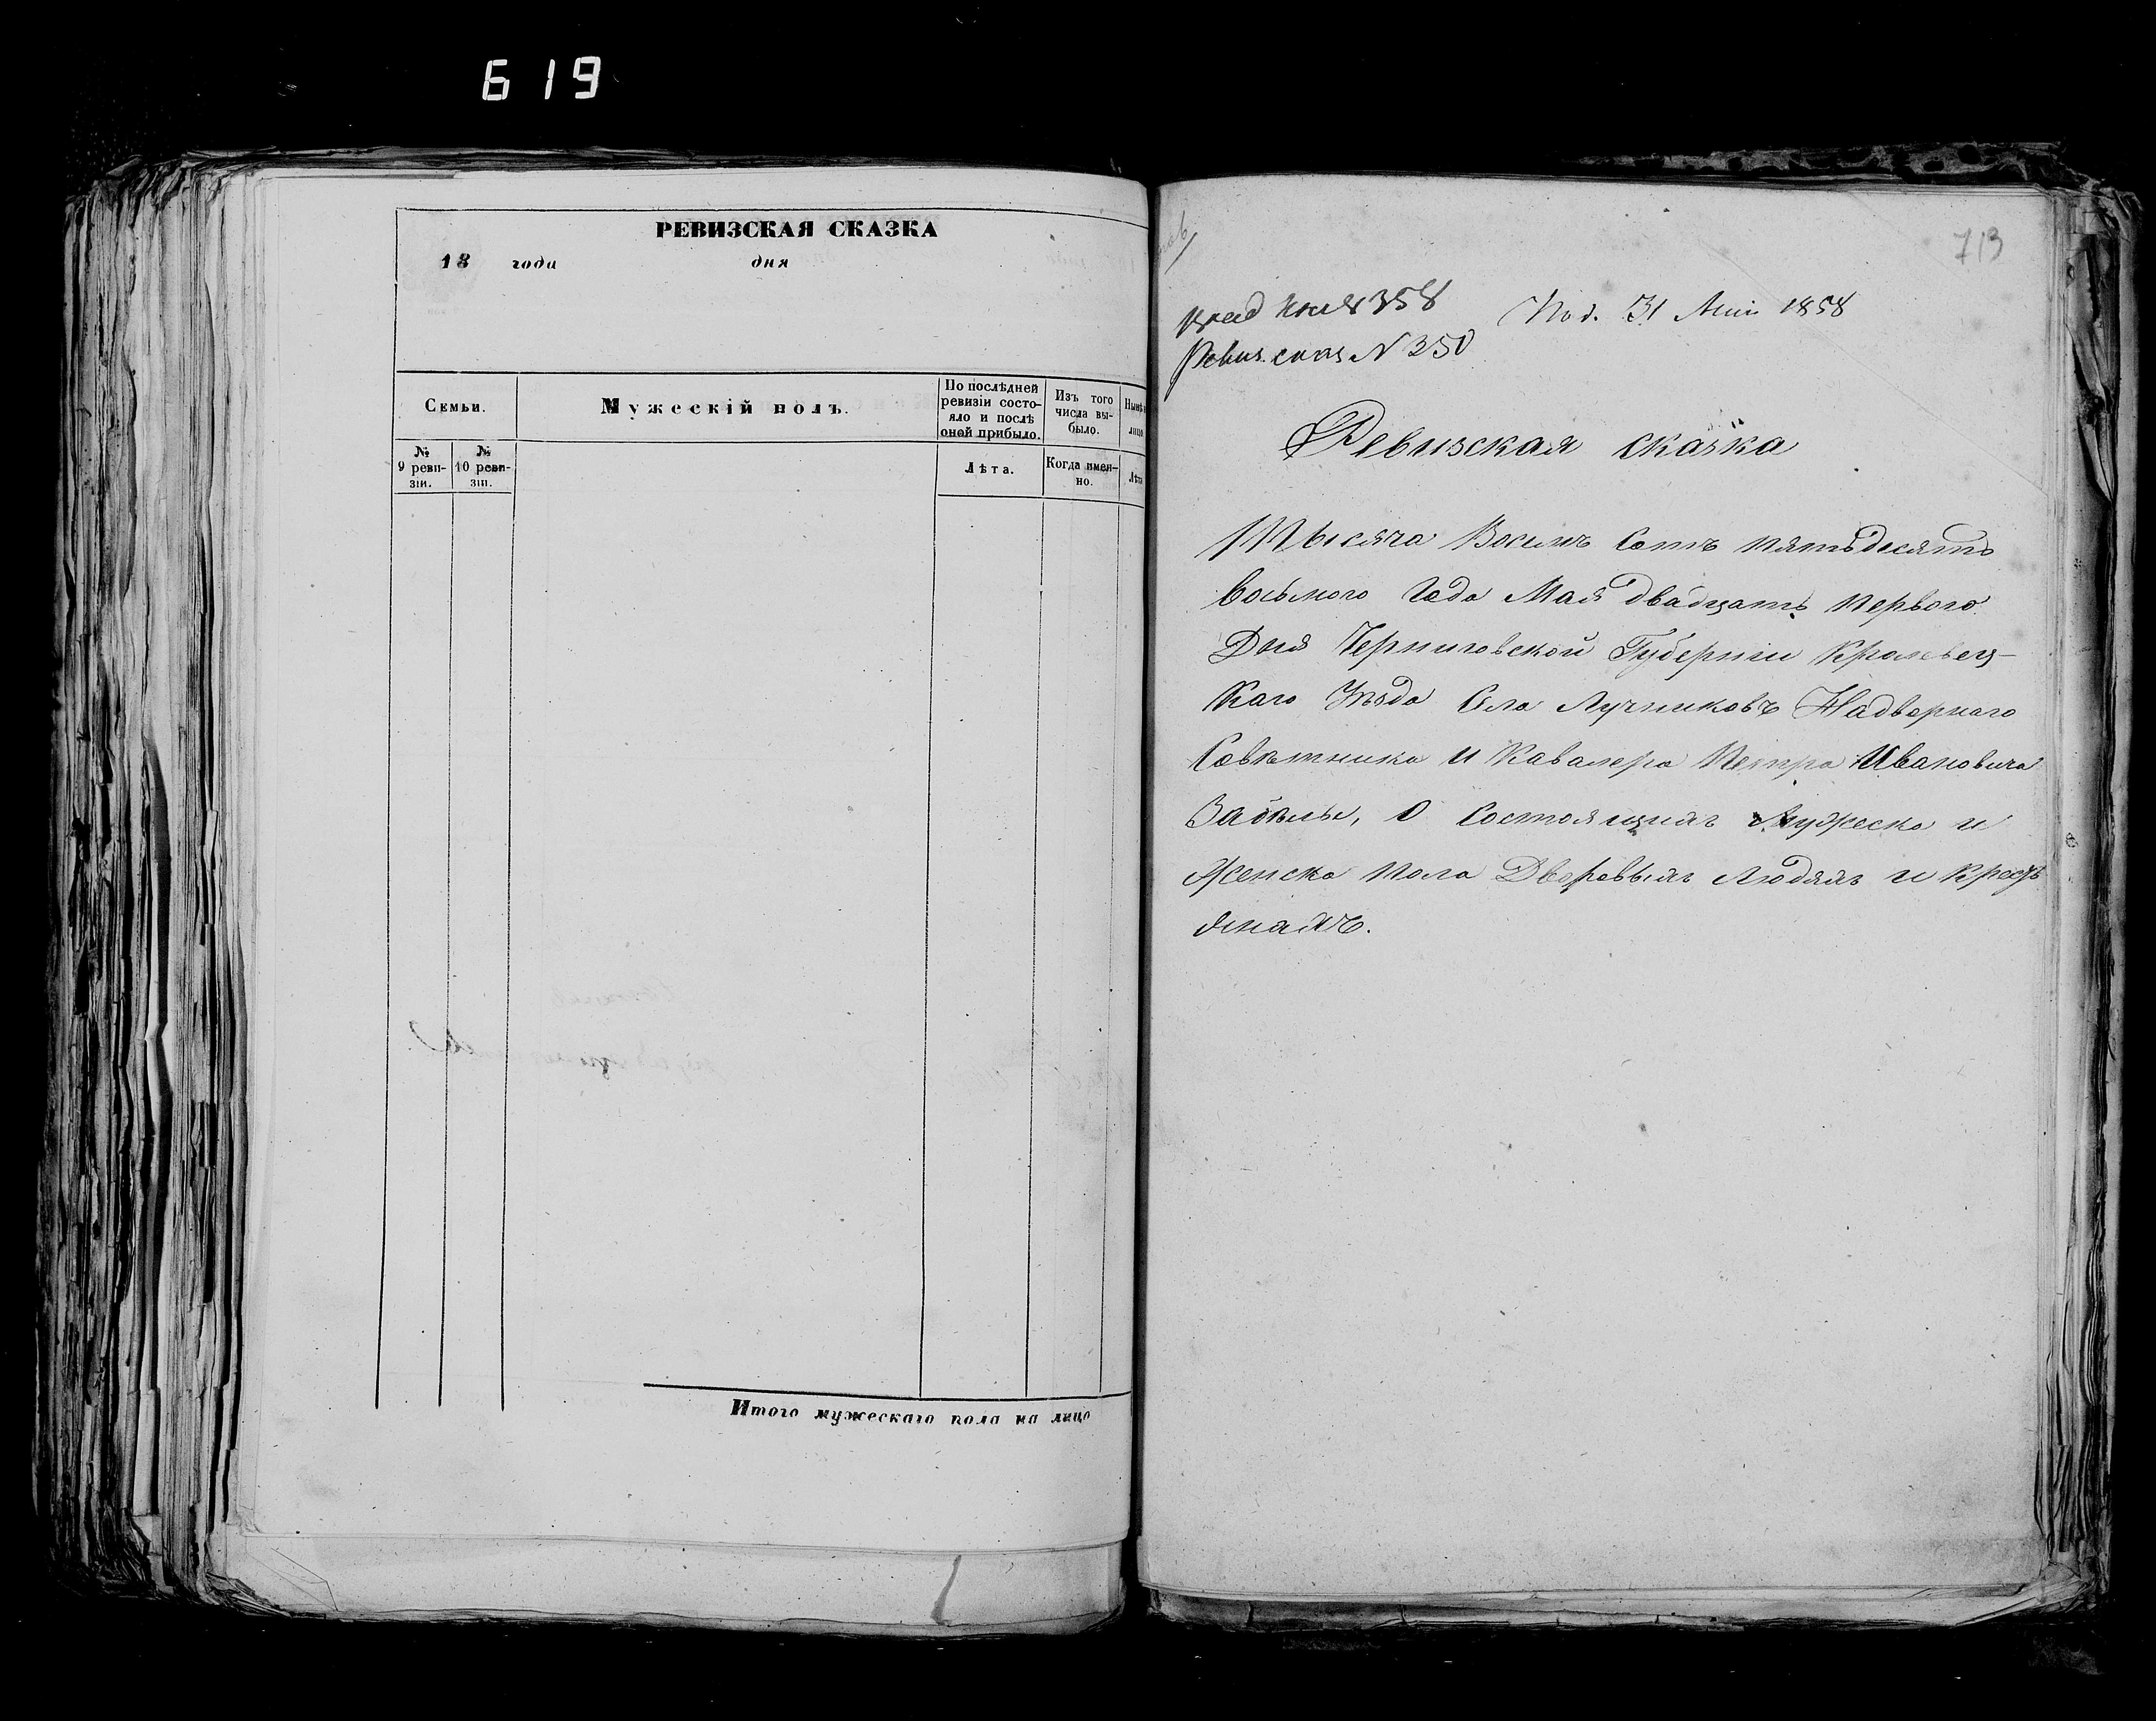 619
РЕВИЗСКАЯ СКАЗКА
18 года дня
Семьи.
Мужескій полъ.
По послѣдней ревизіи состо-
яло и послѣ
оной прибыло.
Изъ того
числа вы-
было.
№
9 реви-
зіи.
№
10 реви-
зіи.
Лѣта.
Когда имен-
но.
Итого мужескаго пола на лицо
713
358
Под. 31 Маія 1858
Ревиз. сказ № 350
Ревизская сказка
Тысяча Восемь Сотъ Пятьдесятъ
Восьмого Года Мая двадцать Первого
Дня Черниговской Губерніи Кролевец-
каго Уѣзда Села Лучниковъ Надворнаго
Совѣтника и Кавалера Петра Ивановича
Забѣлы, О Состоящихъ Мужеска и
Женска Пола Дворовыхъ Людяхъ и Кресть
янахъ.